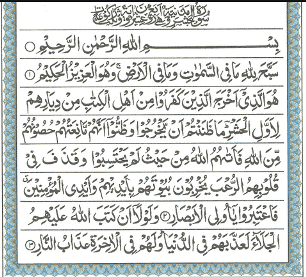 بِسْمِ اللهِ الرَّحْمٰنِ الرَّحِيْمِ
سَبَّحَ لِلّٰهِ مَا فِى السَّمٰوٰتِ وَمَا فِى الْاَرْضِ ۚ وَهُوَ الْعَزِيْزُ الْحَكِيْمُ ۝۱
هُوَ الَّذِىْٓ اَخْرَجَ الَّذِيْنَ كَفَرُوْا مِنْ اَهْلِ الْكِتٰبِ مِنْ دِيَارِهِمْ
لِاَوَّلِ الْحَشْرِ ؕ مَا ظَنَنْتُمْ اَنْ يَّخْرُجُوْا وَظَنُّوْٓا اَنَّهُمْ مَّانِعَتُهُمْ حُصُوْنُهُمْ
مِّنَ اللهِ فَاَتٰىهُمُ اللهُ مِنْ حَيْثُ لَمْ يَحْتَسِبُوْا ۗ وَقَذَفَ فِىْ
قُلُوْبِهِمُ الرُّعْبَ يُخْرِبُوْنَ بُيُوْتَهُمْ بِاَيْدِيْهِمْ وَاَيْدِى الْمُؤْمِنِيْنَ ۗ
فَاعْتَبِرُوْا يٰٓاُولِى الْاَبْصَارِ ۝۲ وَلَوْلَآ اَنْ كَتَبَ اللهُ عَلَيْهِمُ
الْجَلَآءَ لَعَذَّبَهُمْ فِى الدُّنْيَا ؕ وَلَهُمْ فِى الْاٰخِرَةِ عَذَابُ النَّارِ ۝۳